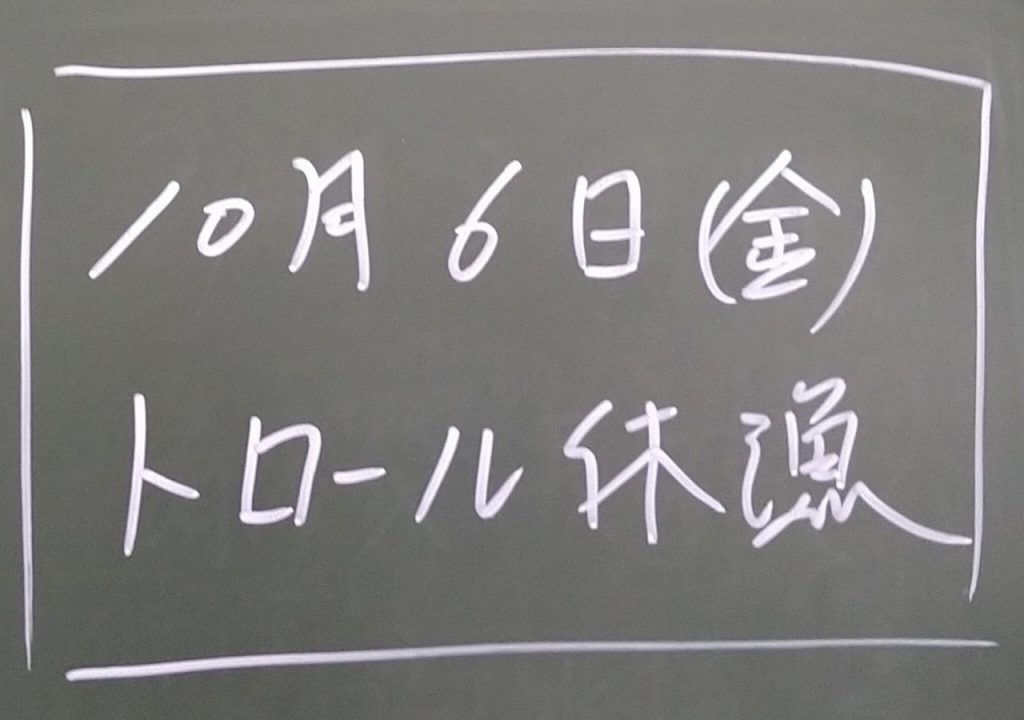 10月6日(金)
トロール休漁